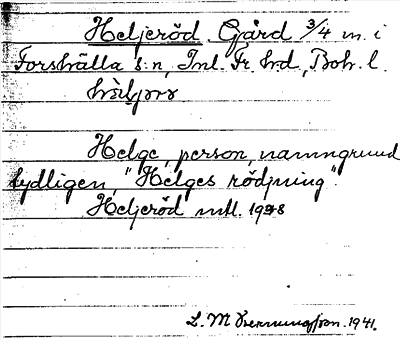 Heljeröd. Gård 3/4 m. i
Forshälla s:n, Inl. Fr. hd, Boh. l.
Helge, person, namngrund
tydligen, "Helges rödjning".
Heljeröd mtl. 1948
L. M Svenningsson. 1941.